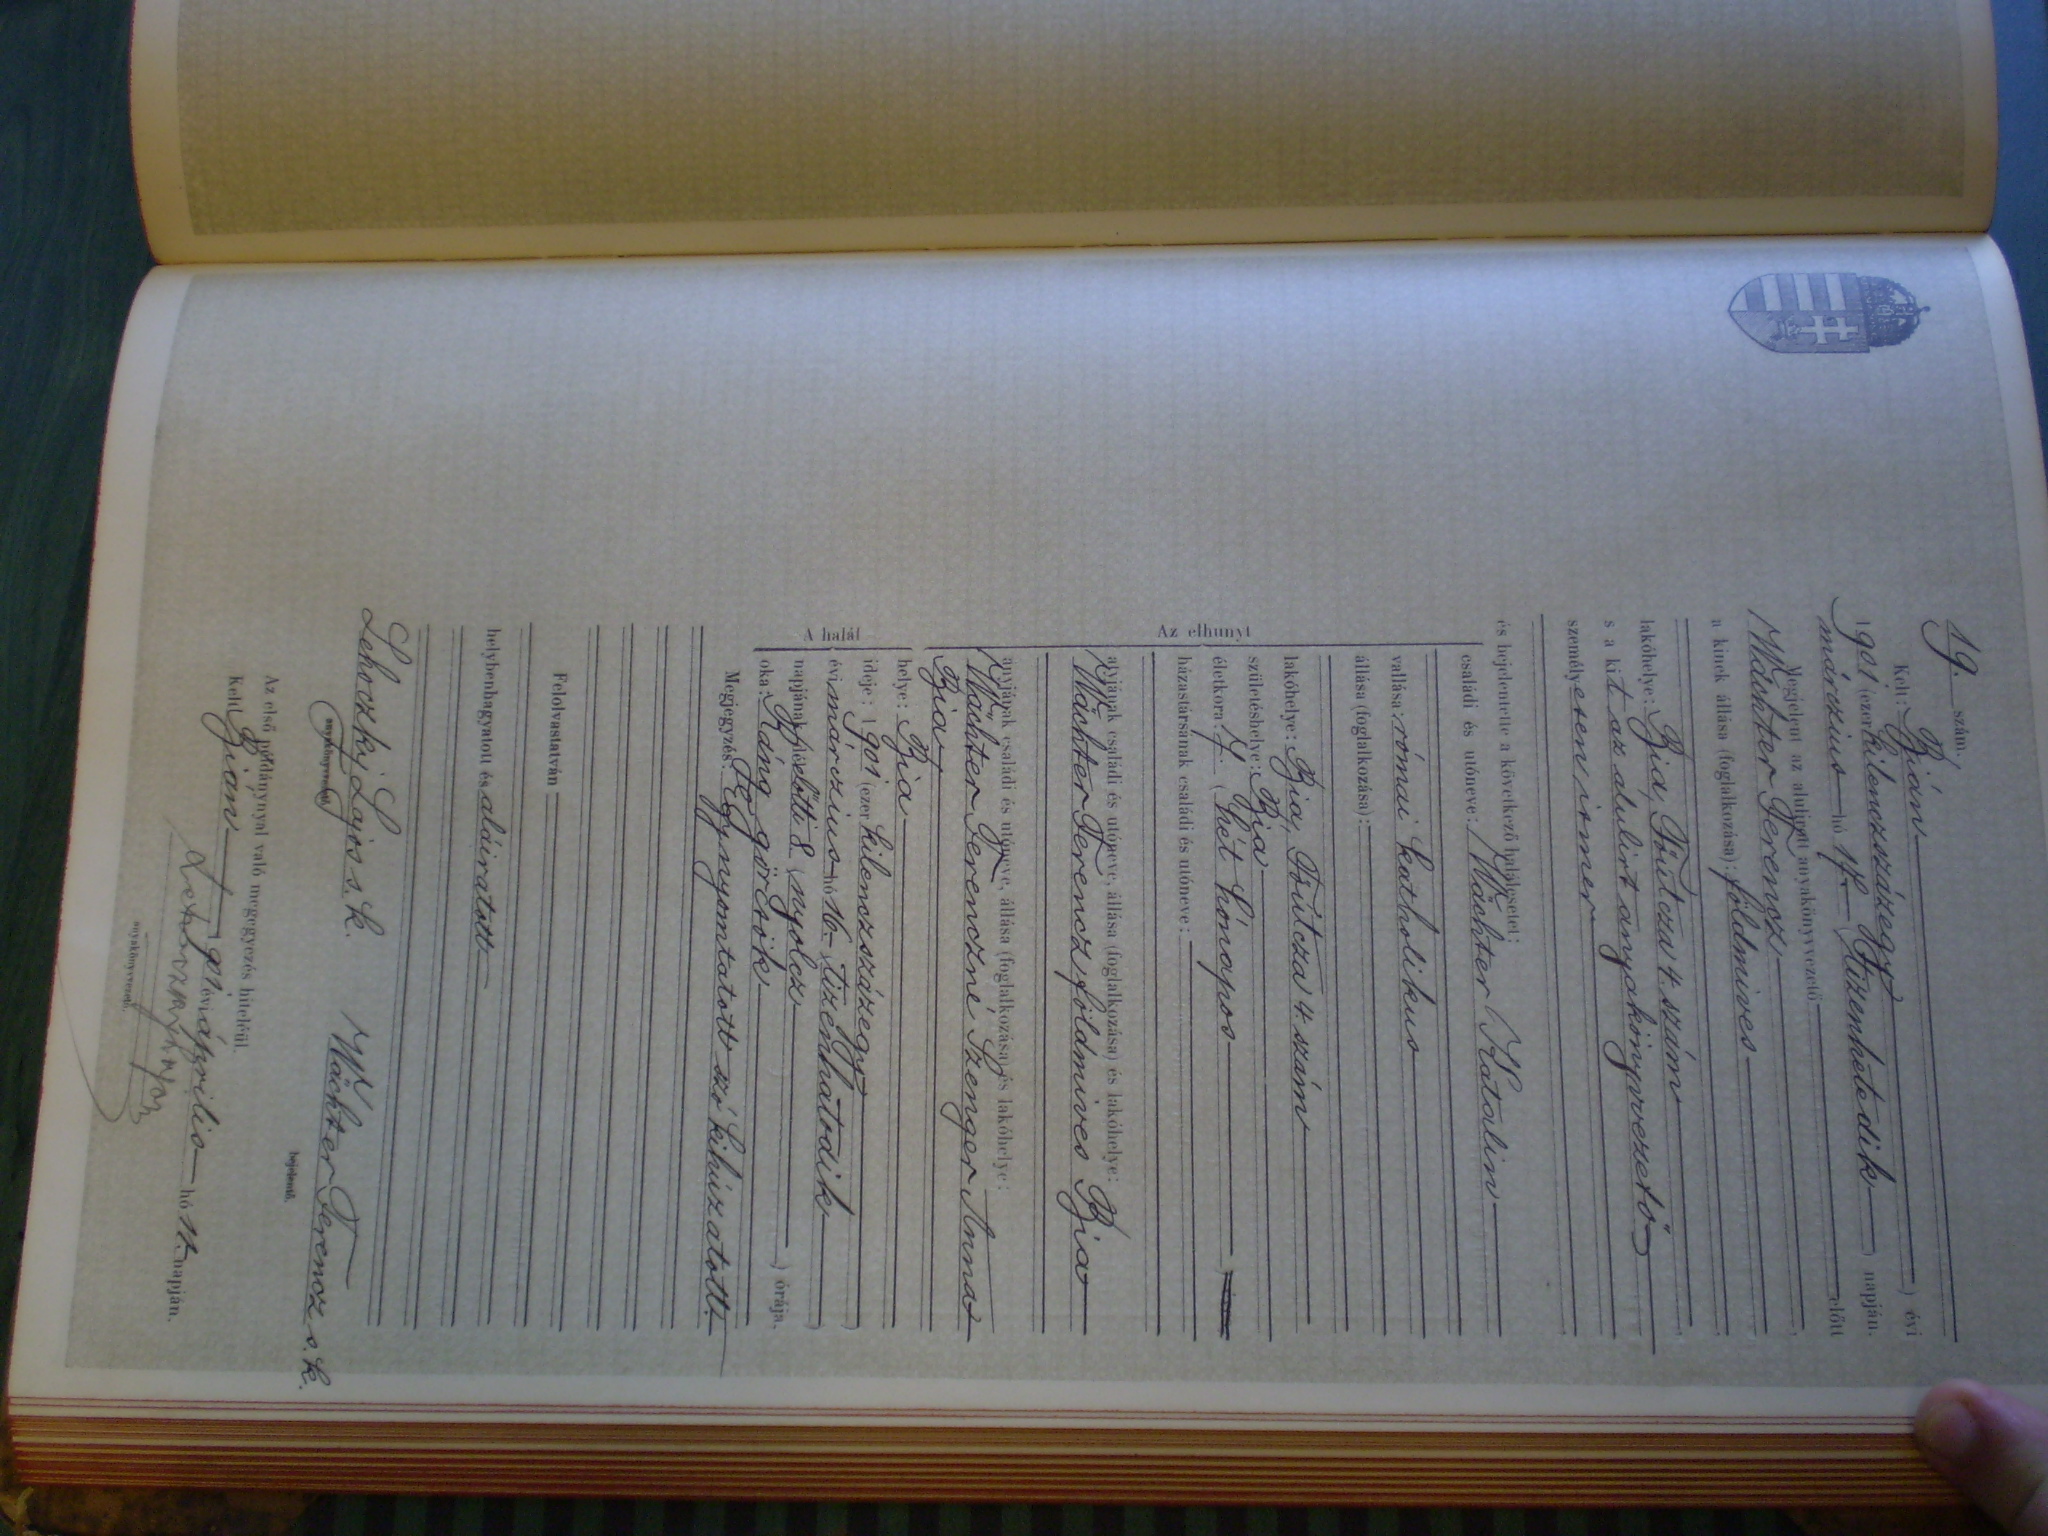 19. szám.
Kelt: Bián
1901 (ezer kilenczszázegy) évi
márczius hó 17 (tizenhetedik) napján.
Megjelent az alulirott anyakönyvvezető előtt
Wächter Ferencz,
a kinek állása (foglalkozása): földmives
lakóhelye: Bia, Főutcza 4. szám,
s a kit az alulirt anyakönyvvezető
személyesen ismer,
és bejelentette a következő halálesetet:
Az elhunyt
családi és utóneve: Wächter Katalin
vallása: római katholikus
állása (foglalkozása):
lakóhelye: Bia, Főutcza 4 szám
születéshelye: Bia
életkora: 7 (hét hónapos)
házastársának családi és utóneve:
atyjának családi és utóneve, állása (foglalkozása) és lakóhelye:
Wächter Ferencz földmives Bia
anyjának családi és utóneve, állása (foglalkozása) és lakóhelye:
Wächter Ferenczné Szenger Anna
Bia
A halál
helye: Bia
ideje: 1901 (ezer kilenczszázegy)
évi márczius hó 16 (tizenhatodik)
napjának d. előtti 8 (nyolcz) órája.
oka: Ráng görcsök
Megjegyzés: Egy nyomtatott szó kihúzatott.
Felolvastatván
helybenhagyatott és aláiratott
Lehoczky Lajos s. k. Wächter Ferencz s. k.
anyakönyvvezető. bejelentő.
Az első példánynyal való megegyezés hiteléül.
Kelt Bián 1901 évi április hó 11. napján.
Lehoczky Lajos
anyakönyvvezető.